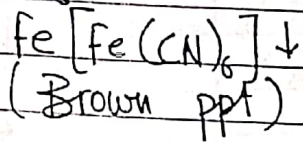 Fe[Fe(CN)₆]↓
(Brown ppt)